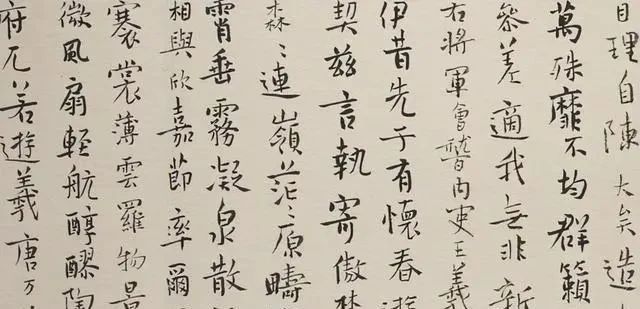 目理自陳大矣造
萬殊靡不均群籟
參差適我無非新
右將軍會嵇內史王羲
伊昔先子有懷春遊
契茲言執寄傲林
森〻連嶺茫〻原疇
霄垂霧凝泉散
相與欣嘉節率爾
褰裳薄雲羅物景
微風扇輕航醇醪陶
府兀若遊羲唐万